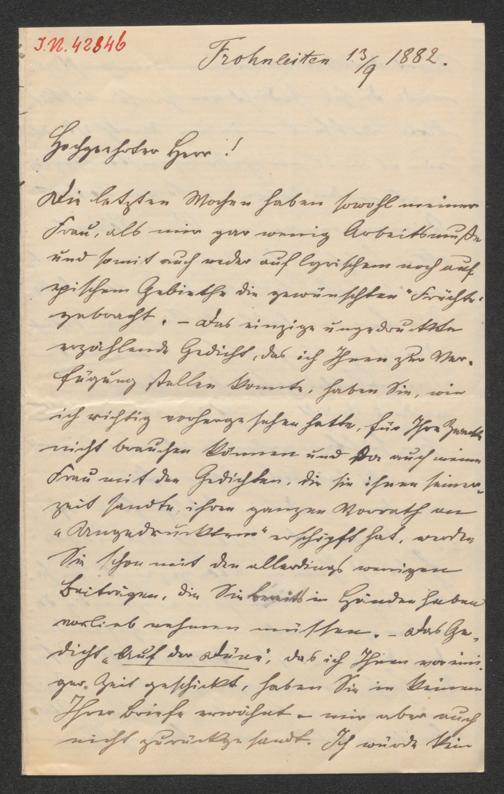 J.N. 42846
Frohnleiten 13/9 1882.
Hochgeehrter Herr!
Die letzten Wochen haben sowohl meiner
Frau, als mir gar wenig Arbeitsmuße
und somit auch weder auf lyrischem noch auf
epischem Gebiethe die gewünschten Früchte
gebracht. – Das einzige ungedruckte
erzählende Gedicht, das ich Ihnen zur Ver-
fügung stellen konnte, haben Sie, wie
ich richtig vorhergesehen hatte, für Ihre Zwecke
nicht brauchen können und da auch meine
Frau mit den Gedichten, die sie ihnen seiner-
zeit sandte, ihren ganzen Vorrath an
"Ungedrucktem" erschöpft hat, werden
Sie schon mit den allerdings wenigen
Beiträgen, die Sie bereits in Händen haben
vorlieb nehmen müssen. – Das Ge-
dicht "Auf der Düne", das ich Ihnen vor eini-
ger Zeit geschickt, haben Sie in keinem
Ihrer Briefe erwähnt – mir aber auch
nicht zurückgesandt. Ich würde